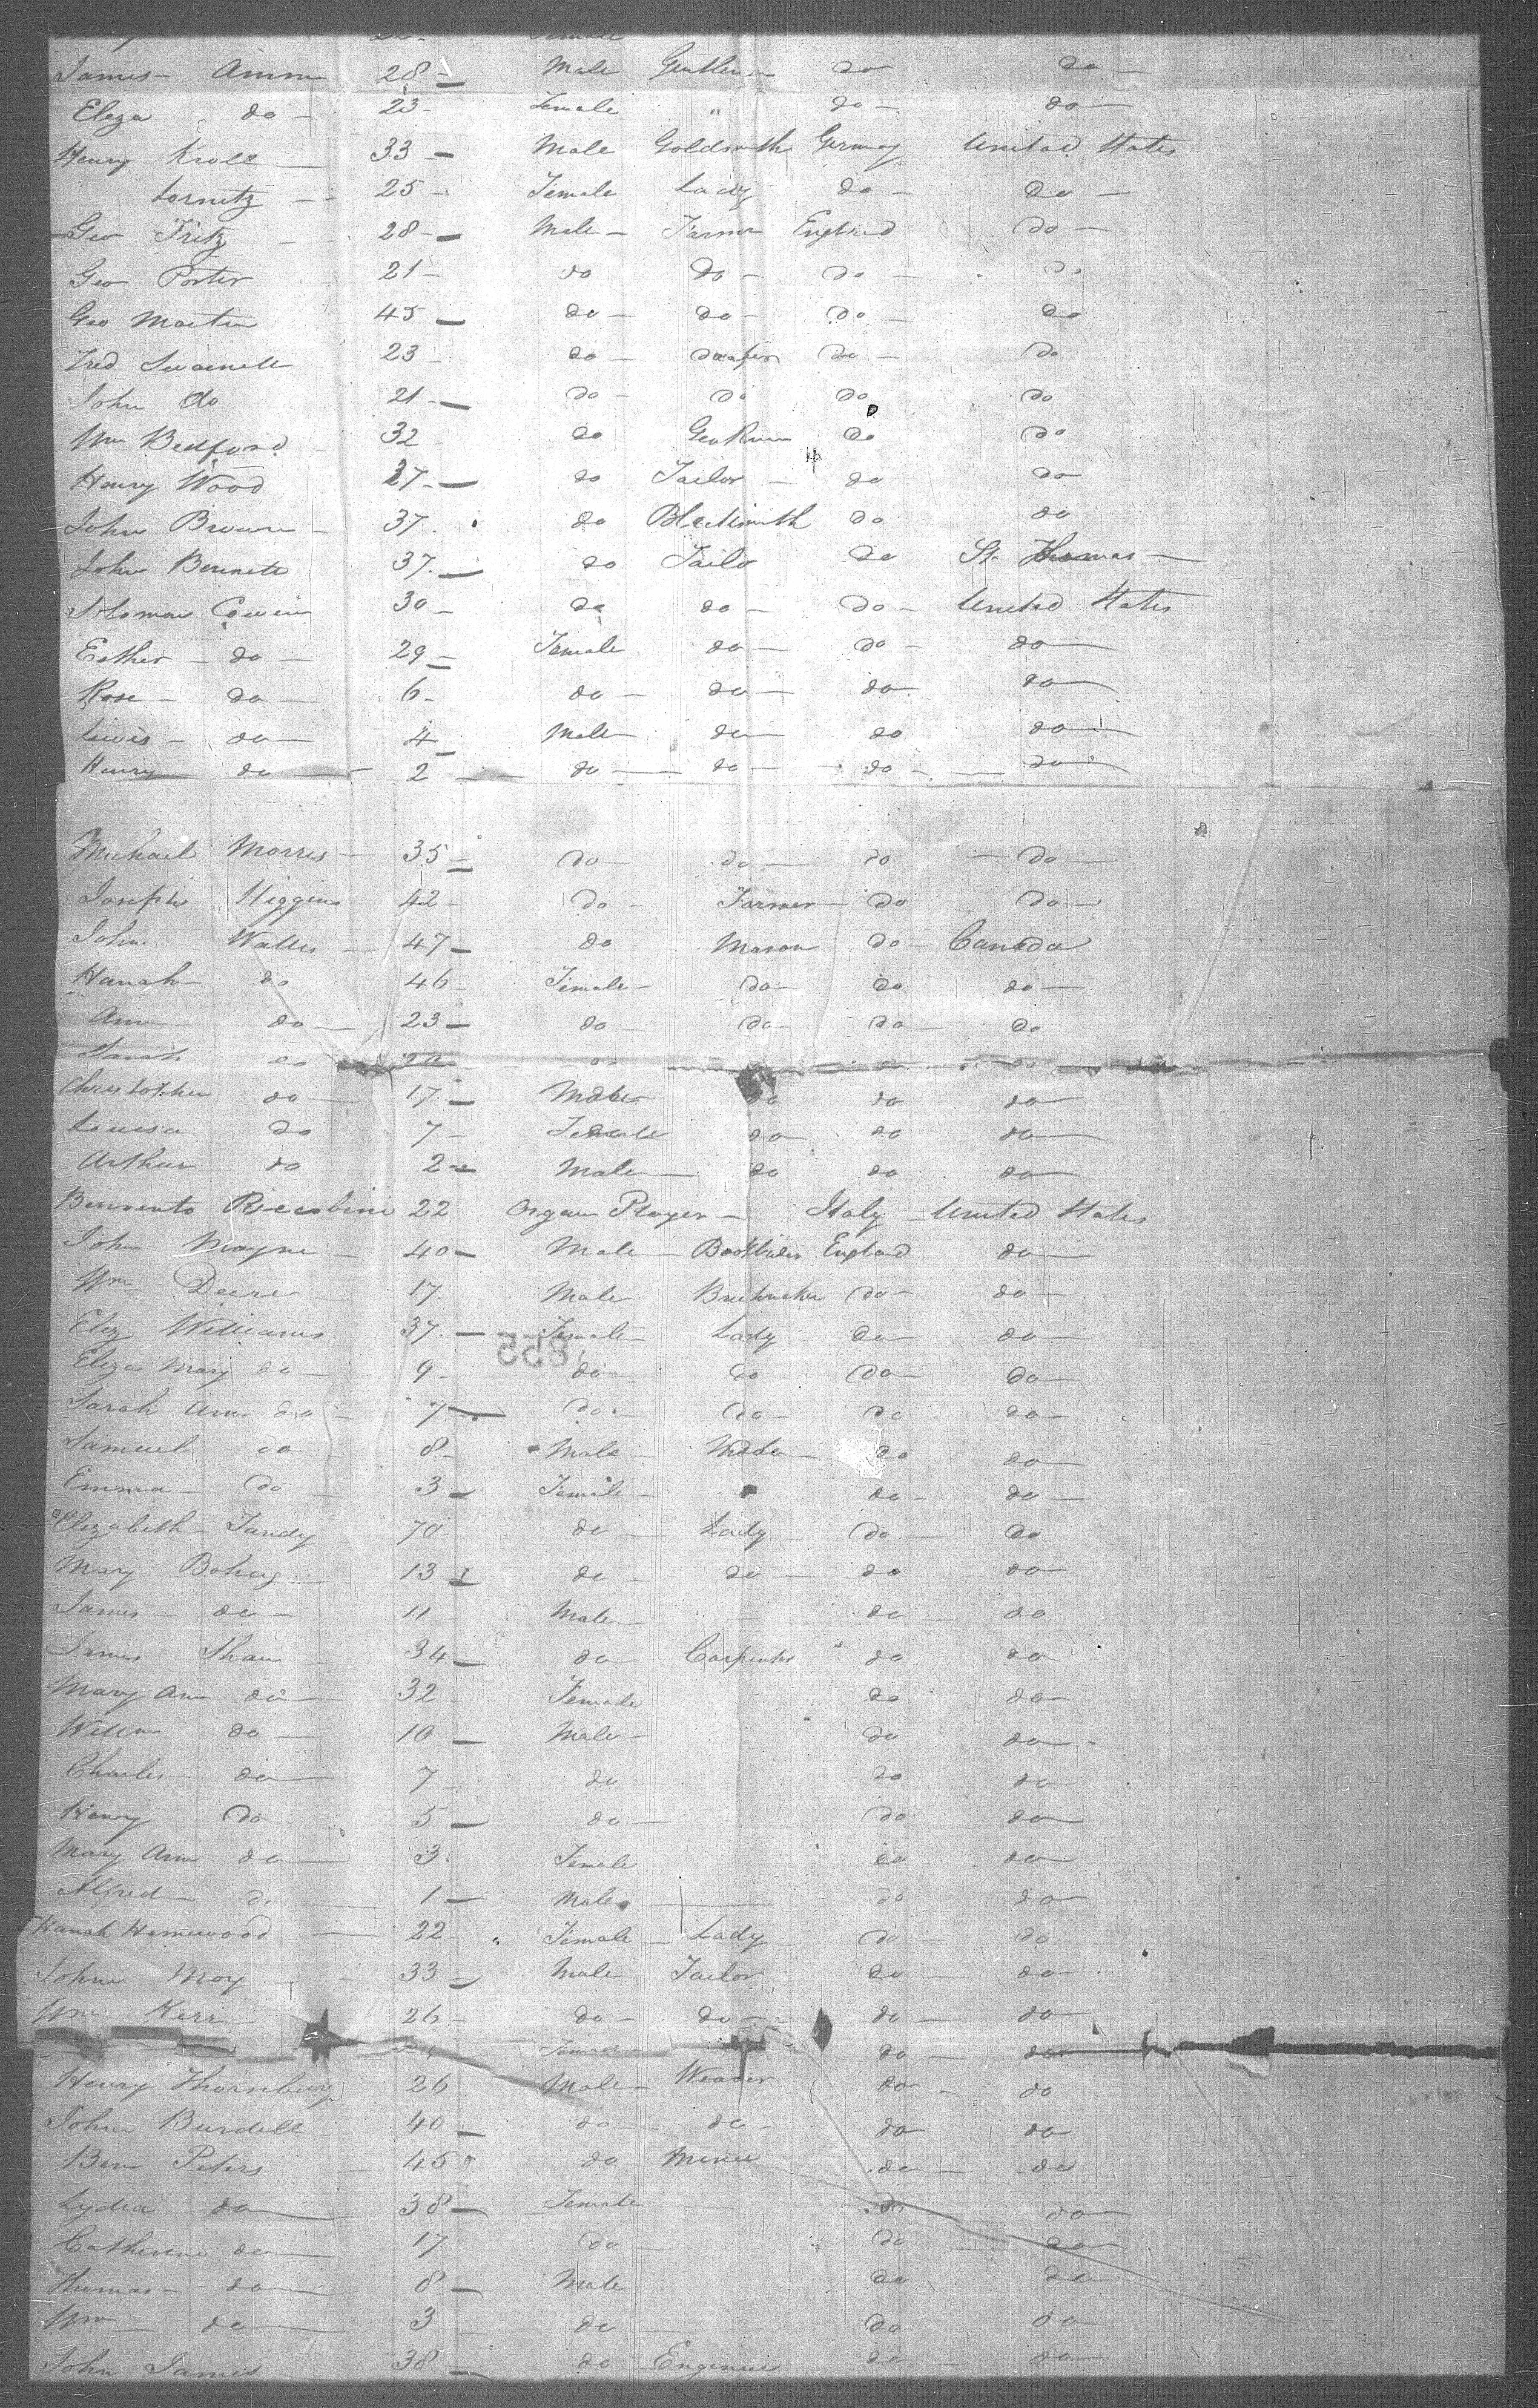 James - Amm 28 - Male Gentleman do do -
Eliza do - 23 - Female " do - do -
Henry Kroll - 33 - Male Goldsmith Germay United States
Lornitz - 25 - Female Lady do - do -
Geo Fritz - 28 - Male - Farmer England do -
Geo Porter 21 - do do - do - do
Geo Martin 45 - do - do - do - do
Fred 23 - do - do - do
John do 21 - do - do do do
Wm Bedford 32 do do do
Henry Wood 27 - do Tailor - do do
John Brown - 37 . do Blacksmith do do
John Bennett 37 - do Tailo do St. Thomas -
Solomon Cowen 30 - do do - do - United States
Esther - do - 29 - Female do - do - do -
Rose - do - 6 - do - do - do do -
Lewis - do - 4 - Male do - do do -
Henry do - 2 - do - do - do - do -
Michael Morris - 35 - do - do - do - do -
Joseph Higgins 42 - do - Farmer - do do -
John Walles - 47 - do Mason do - Canada
Hanah do 46 - Female - do - do do -
Ann do - 23 - do - do - do - do
Sarah do
Christopher do - 17 - Male do do do
Louisa do 7 - Female do - do do -
Arthur do 2 - Male - do do do -
22 Organ Player - Italy - United States
John Mayne - 40 - Male - Bookbinder England do -
Wm Deere 17. Male do - do -
Eliz Williams 37. - Female - Lady do - do -
855
Eliza Mary do - 9 - do - do do - do -
Sarah Ann do - 7 - do - do - do do -
Samuel do 8 - Male - do do -
Emma - do - 3 - Female - do - do -
Elizabeth Tandy 70 - do - Lady - do - do
Mary 13 - do - do - do do -
James - do - 11 - Male - do - do
James Shaw - 34 - do - Carpenter " do do
Mary Ann do - 32 Female do do -
Willm do - 10 - Male - do do -
Charles - do - 7 - do - do do -
Henry do 5 - do - do do -
Mary Ann do - 3. Female do do -
Alfred - do 1 - Male do do -
Hanah Homewood - 22 - " Female - Lady - do - do
John Moy - 33 - Male Tailor do do
Wm Kerr - 26 - do - do - do - do -
Female do - do -
Henry Thornbury 26 Male - Weaver do - do
John Burdell 40 - do do - do do
Ben Peters - 45 " do Miner do - do
Lydia do - 38 - Female - do do -
Catherine do - 17 do - do do -
Thomas - do - 8 - Male do do
Wm - do - 3 do - do do -
John James 38 - do Engineer do - do -